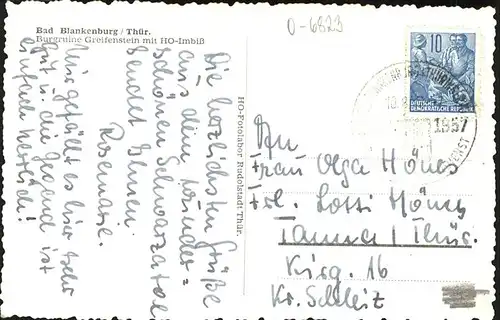 Bad Blankenburg / Thür.
Burgruine Greifenstein mit HO-Imbiß
O-6823
10
DEUTSCHE
DEMOKRATISCHE REPUBLIK
1957
HO-Fotolabor Rudolstadt Thür.
Die herzlichsten Grüße
aus dem wunder=
schönen Schwarzatal
sendet Ihnen
Rosemarie.
Mir gefällt es hier sehr
gut u. die Gegend ist
einfach herrlich!
An
Frau Olga
Frl. Lotti
Tanna / Thür.
Kirg. 16
Kr. Schleiz